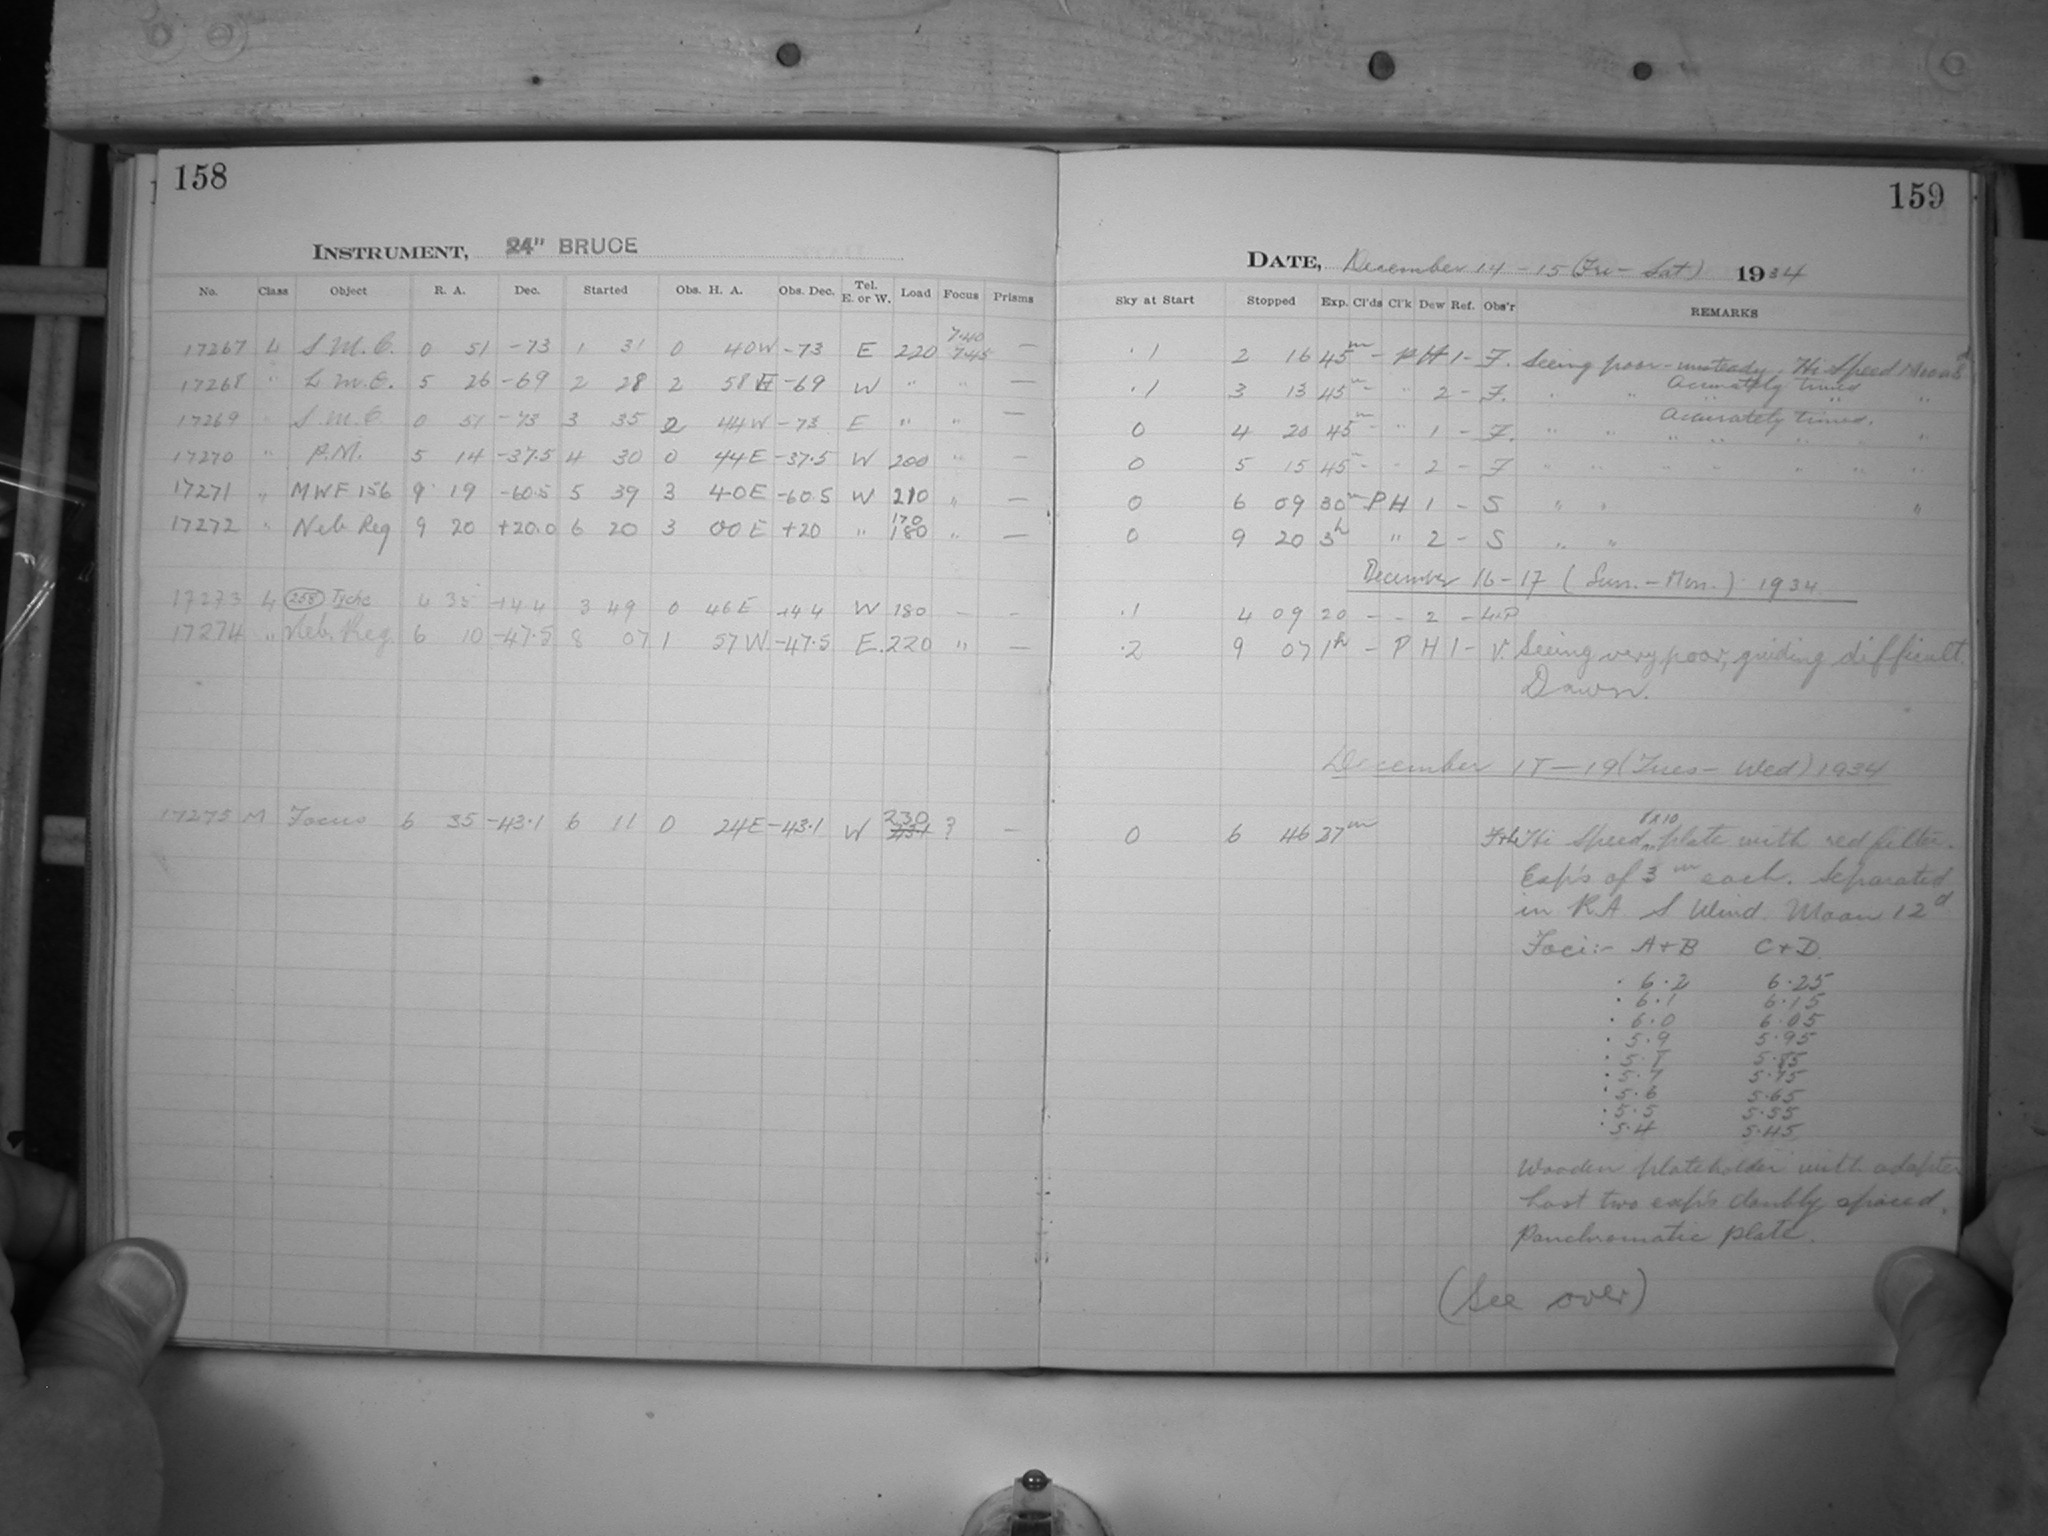 158
INSTRUMENT, 24" BRUCE
No. Class Object R. A. Dec. Started Obs. H. A. Obs. Dec. Tel. E. or W. Load Focus Prisms
17267 L S.M.C. 0 51 -73 1 31 0 40W -73 E 220 7.40 7.45 —
17268 " L.M.C. 5 26 -69 2 28 2 58E -69 W " " —
17269 " S.M.C. 0 51 -73 3 35 2 44W -73 E " " —
17270 " P.M. 5 14 -37.5 4 30 0 44E -37.5 W 200 " —
17271 " MWF 156 9 19 -60.5 5 39 3 40E -60.5 W 210 " —
17272 " Neb Reg 9 20 +20.0 6 20 3 00E +20 " 170 180 " —
17273 L 258 Tyche 4 35 +4.4 3 49 0 46E +4.4 W 180 — —
17274 " Neb. Reg. 6 10 -47.5 8 07 1 57W. -47.5 E. 220 " —
17275 M Focus 6 35 -43.1 6 11 0 24E -43.1 W 230 ? —
159
DATE, December 14-15 (Fri-Sat) 1934
Sky at Start Stopped Exp. Cl'ds Cl'k Dew Ref. Obs'r REMARKS
.1 2 16 45m - P H 1 - F. Seeing poor - unsteady. Hi Speed
Accurately timed
.1 3 13 45m - " 2 - F. " " "
Accurately timed.
0 4 20 45m - " 1 - F. " " " " " "
0 5 15 45m - - 2 - F " " " " " " "
0 6 09 30m - P H 1 - S " " "
0 9 20 3h " 2 - S " "
December 16-17 (Sun.-Mon.) 1934
.1 4 09 20 - - 2 -
.2 9 07 1h - P H 1 - V. Seeing very poor, guiding difficult.
Dawn.
December 18-19 (Tues-Wed) 1934
0 6 46 37m Hi Speed 8x10 plate with red filter.
Exp's of 3m each. Separated
in RA. S Wind. Moon 12d
Foci:- A+B C+D
. 6.2 6.25
. 6.1 6.15
. 6.0 6.05
. 5.9 5.95
. 5.8 5.85
. 5.7 5.75
. 5.6 5.65
. 5.5 5.55
. 5.4 5.45
Wooden plateholder with adapter
Last two exp's doubly spaced.
Panchromatic plate.
(See over)